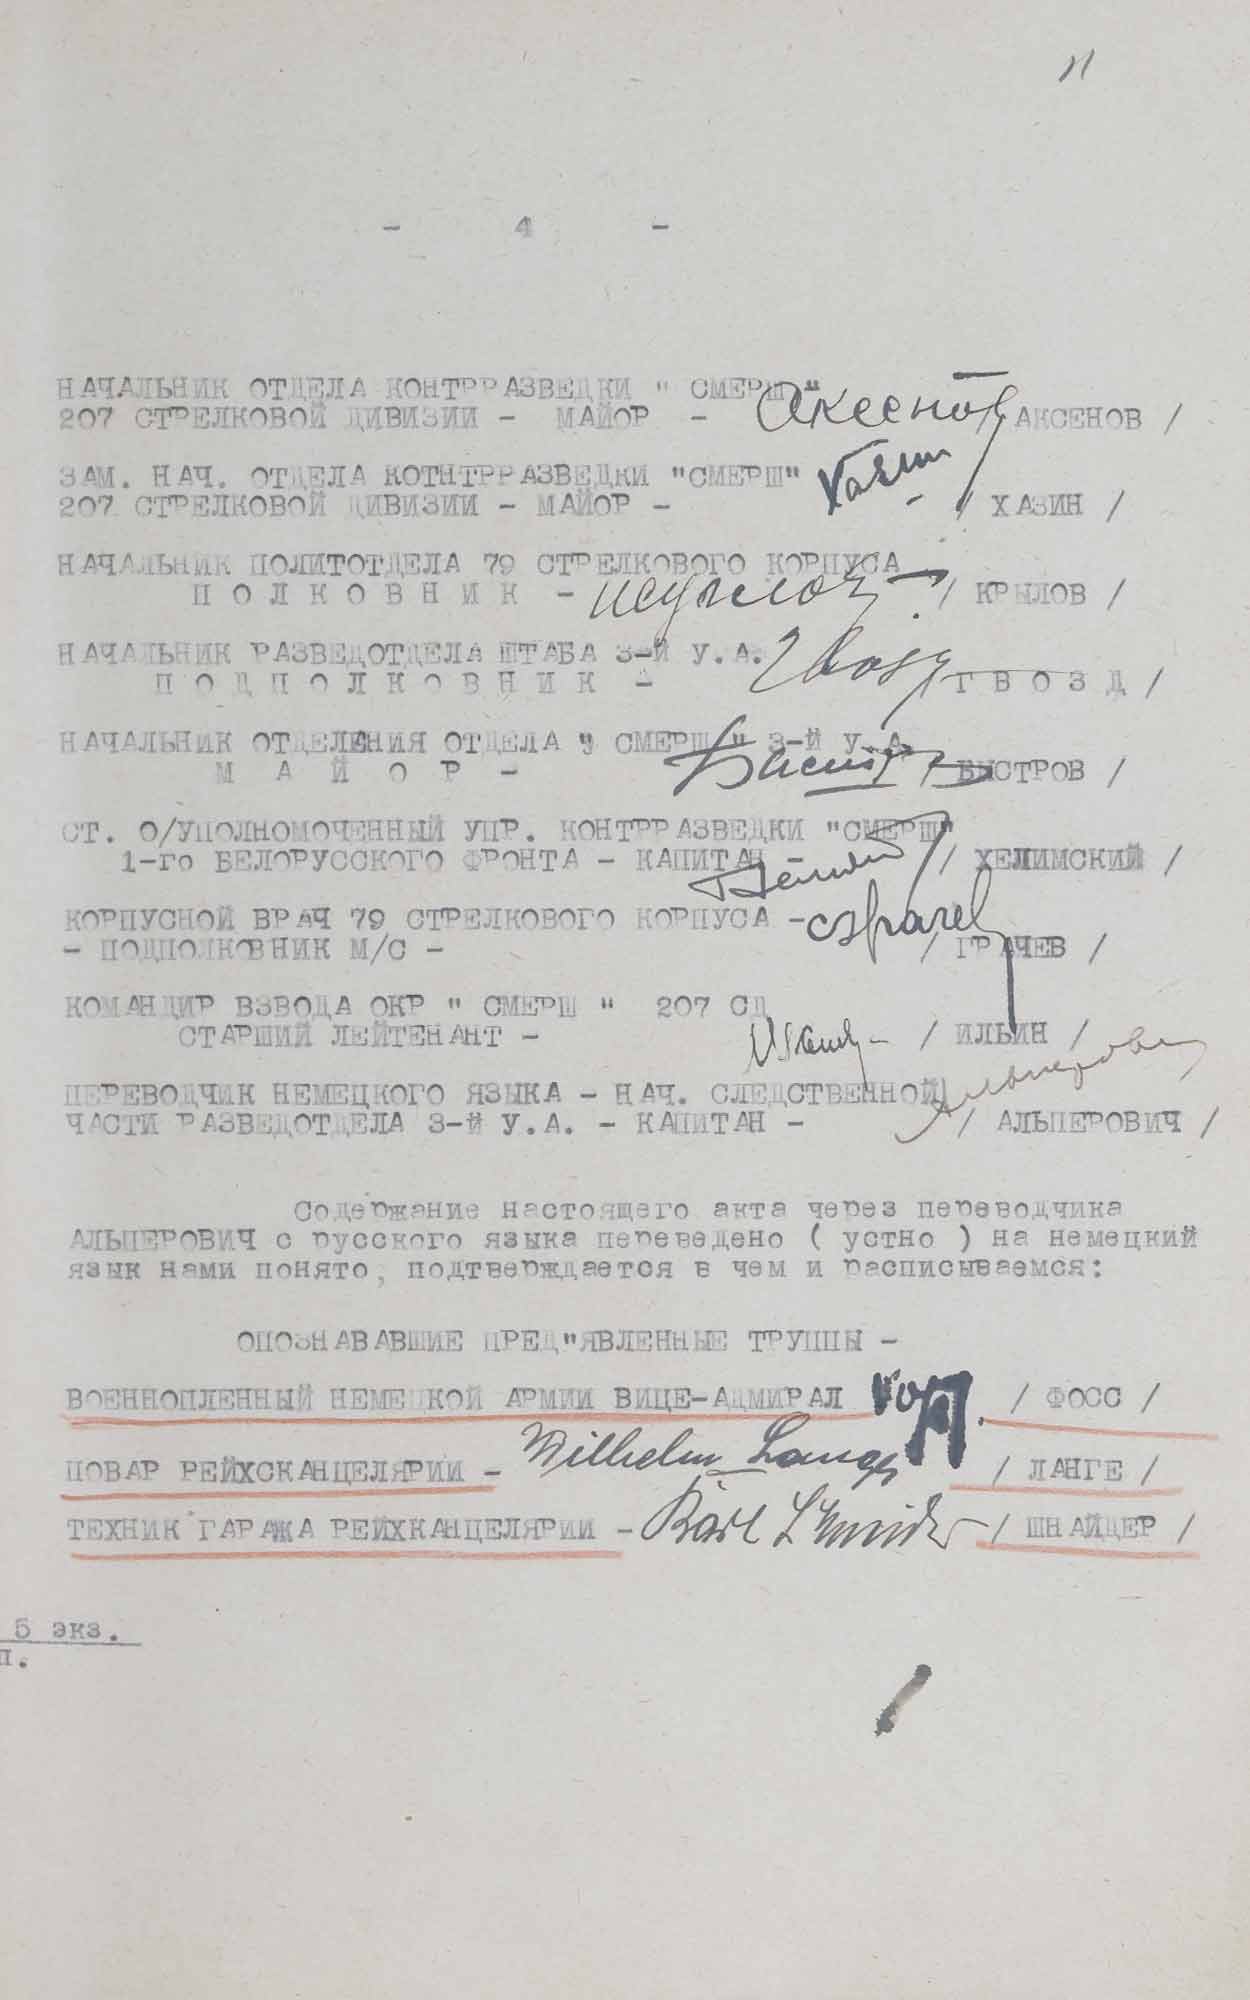 11
- 4 -
НАЧАЛЬНИК ОТДЕЛА КОНТРРАЗВЕДКИ " СМЕРШ "
207 СТРЕЛКОВОЙ ДИВИЗИИ - МАЙОР - Аксенов / АКСЕНОВ /
ЗАМ. НАЧ. ОТДЕЛА КОТНТРРАЗВЕДКИ "СМЕРШ"
207 СТРЕЛКОВОЙ ДИВИЗИИ - МАЙОР - Хазин / ХАЗИН /
НАЧАЛЬНИК ПОЛИТОТДЕЛА 79 СТРЕЛКОВОГО КОРПУСА
П О Л К О В Н И К - / КРЫЛОВ /
НАЧАЛЬНИК РАЗВЕДОТДЕЛА ШТАБА 3-Й У.А.
П О Д П О Л К О В Н И К - Гвозд / Г В О З Д /
НАЧАЛЬНИК ОТДЕЛЕНИЯ ОТДЕЛА " СМЕРШ " 3-Й У.А.
М А Й О Р - / БЫСТРОВ /
СТ. О/УПОЛНОМОЧЕННЫЙ УПР. КОНТРРАЗВЕДКИ "СМЕРШ"
1-ГО БЕЛОРУССКОГО ФРОНТА - КАПИТАН - / ХЕЛИМСКИЙ /
КОРПУСНОЙ ВРАЧ 79 СТРЕЛКОВОГО КОРПУСА -
- ПОДПОЛКОВНИК М/С - / ГРАЧЕВ /
КОМАНДИР ВЗВОДА ОКР " СМЕРШ " 207 СД
СТАРШИЙ ЛЕЙТЕНАНТ - / ИЛЬИН /
ПЕРЕВОДЧИК НЕМЕЦКОГО ЯЗЫКА - НАЧ. СЛЕДСТВЕННОЙ Альперович
ЧАСТИ РАЗВЕДОТДЕЛА 3-Й У.А. - КАПИТАН - / АЛЬПЕРОВИЧ /
Содержание настоящего акта через переводчика
АЛЬПЕРОВИЧ с русского языка переведено ( устно ) на немецкий
язык нами понято, подтверждается в чем и расписываемся:
ОПОЗНАВАВШИЕ ПРЕД"ЯВЛЕННЫЕ ТРУППЫ -
ВОЕННОПЛЕННЫЙ НЕМЕЦКОЙ АРМИИ ВИЦЕ-АДМИРАЛ Voß. / ФОСС /
ПОВАР РЕЙХСКАНЦЕЛЯРИИ - Wilhelm Lange / ЛАНГЕ /
ТЕХНИК ГАРАЖА РЕЙХКАНЦЕЛЯРИИ - Karl Schneider / ШНАЙДЕР /
5 экз.
п.